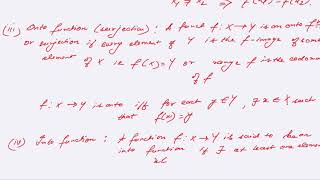 x₁ ≠ x₂ ⇒ f(x₁) ≠ f(x₂)
(iii) Onto function (surjection) : A funct f: X→Y is an onto fⁿ
or surjection if every element of Y is the f-image of some
element of X ie f(X)=Y or range f is the codomain
of f
f: X→Y is onto iff for each y∈Y, ∃ x∈X such
that f(x)=y
(iv) Into function : A function f: X→Y is said to be an
into function if ∃ at least one element